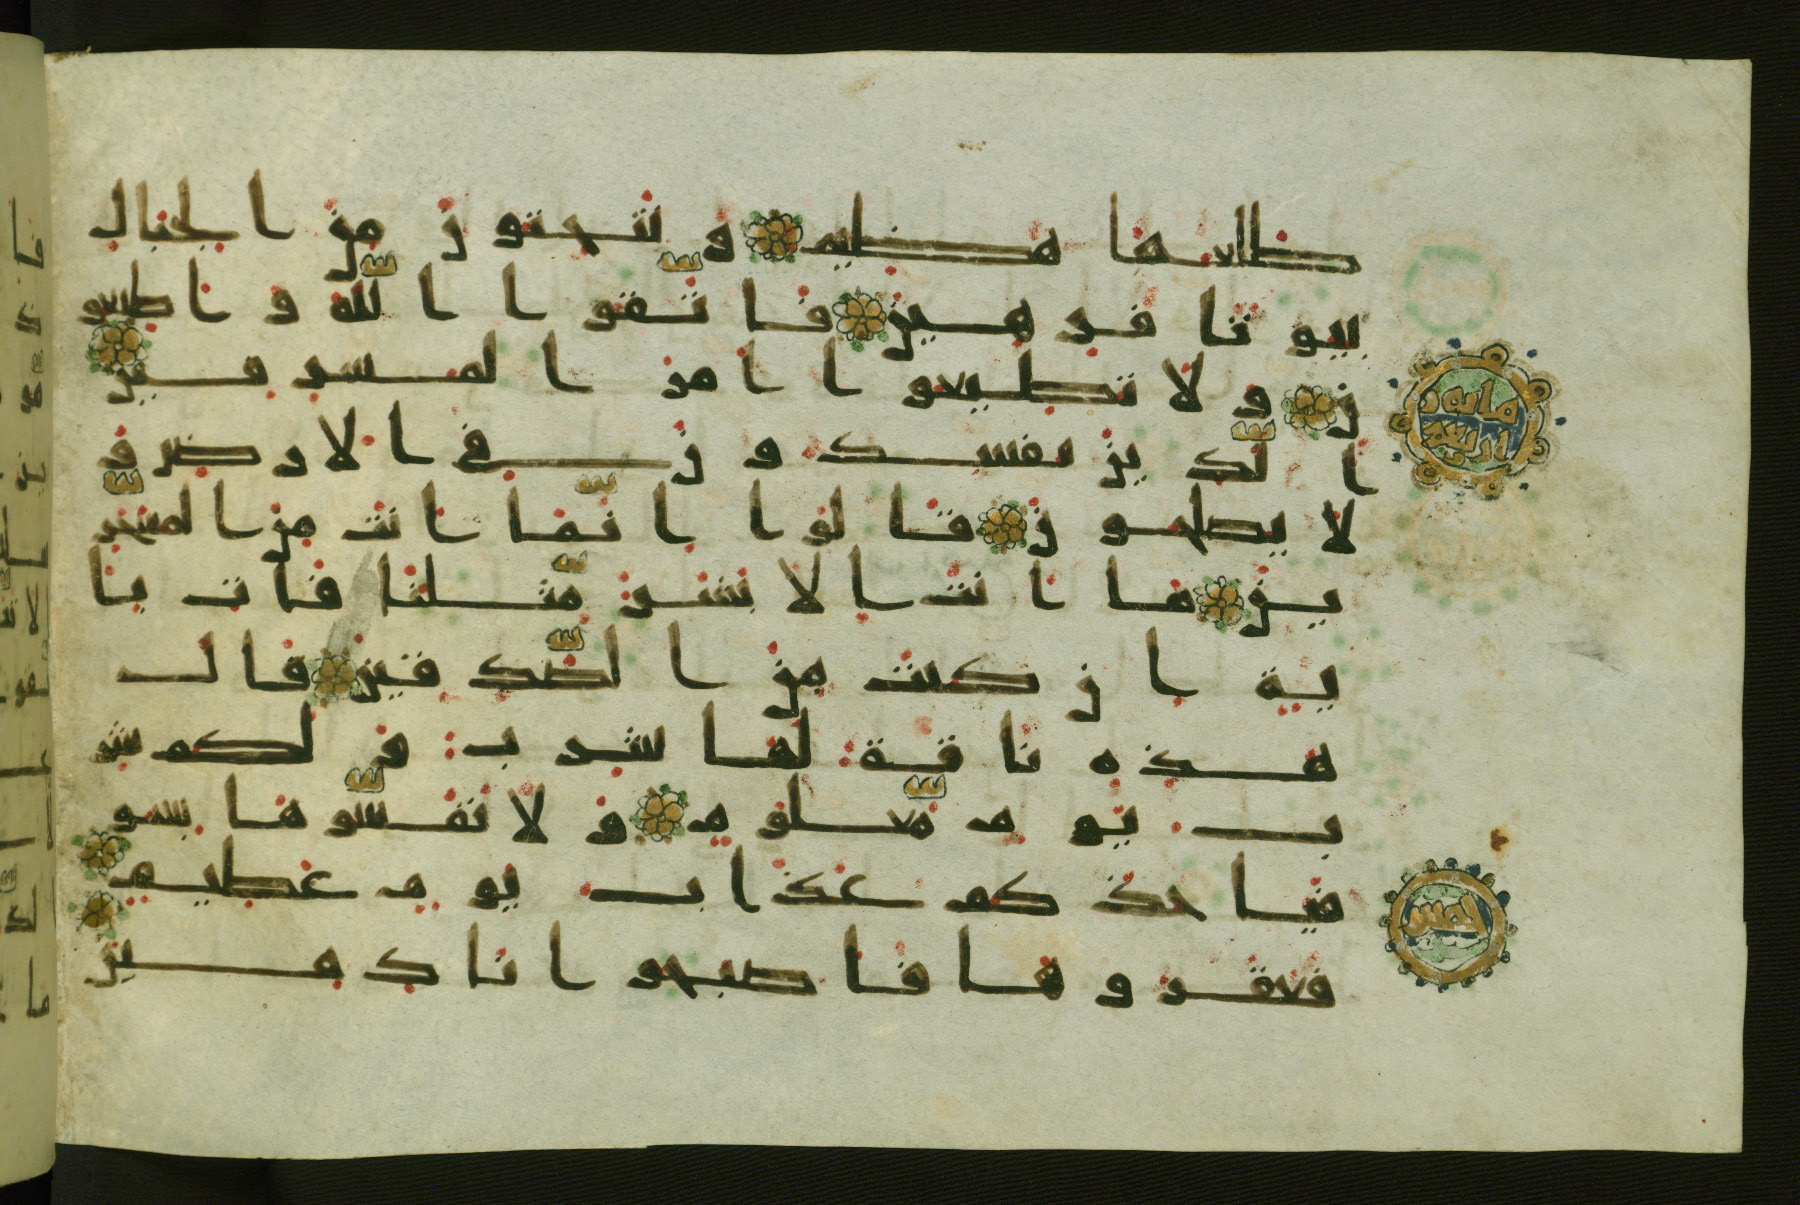 طلعها هضيم و تنحتو ن من ا لجبال
بيو تا فر هين فا تقو ا ا لله و ا طيعو
ن و لا تطيعو ا ا مر ا لمسر فين
ا لذ ين يفسد و ن في ا لا ر ض و
لا يصلحو ن قا لو ا ا نما ا نت من ا لمسحر
ين ما ا نت ا لا بشر مثلنا فا ت با
ية ا ن كنت من ا لصد قين قا ل
هذ ه نا قة لها شر ب و لكم شر
ب يو م معلو م و لا تمسو ها بسو
فيا خذ كم عذ ا ب يو م عظيم
فعقر و ها فا صبحو ا ند مين
ما ية و
ا ر بعو ن
خمس